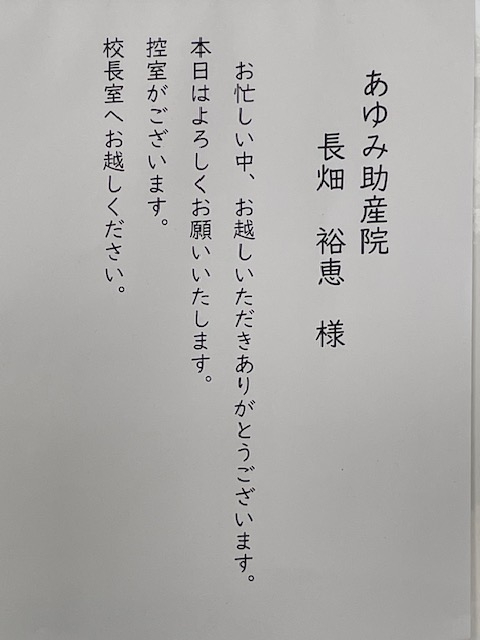 あゆみ助産院
長畑 裕恵 様
お忙しい中、お越しいただきありがとうございます。
本日はよろしくお願いいたします。
控室がございます。
校長室へお越しください。